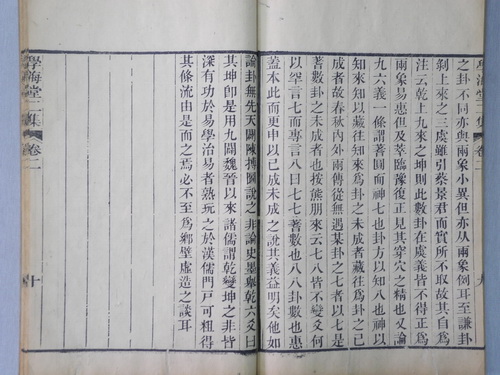 學海堂二集 卷二 九
之卦不同亦與兩象小異但亦从兩象倒耳至謙卦
剝上來之三虞雖引蔡景君而實所不取故其自爲
注云乾上九來之坤則此數卦在虞義皆不得正爲
兩象易惠但及萃臨豫復正見其穿穴之精也又論
九六義一條謂蓍圓而神七也卦方以知八也神以
知來知以藏往知來爲卦之未成者藏往爲卦之已
成者故春秋內外兩傳從無遇某卦之七者以七是
蓍數卦之未成者也按熊朋來云七八皆不變爻何
以罕言七而專言八曰七七蓍數也八八卦數也惠
蓋本此而更申以已成未成之說其義益明矣他如
論卦無先天闢陳摶圖說之非論史墨舉乾六爻曰
其坤卽是用九闢魏晉以來諸儒謂乾變坤之非皆
深有功於易學治易者熟玩之於漢儒門戶可粗得
其條流由是而之焉必不至爲鄉壁虛造之談耳
學海堂二集 卷二 十